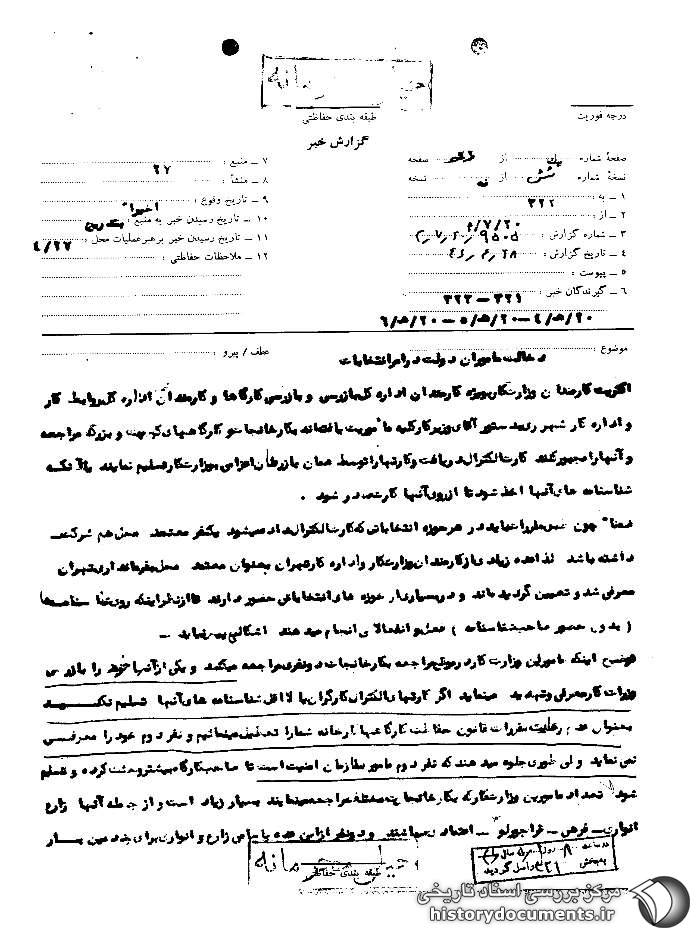 خیلی محرمانه
طبقه بندی حفاظتی
درجه فوریت
گزارش خبر
صفحهٔ شماره یک از صفحه
نسخهٔ شماره شش از نسخه
۱ – به : ۳۲۲
۲ – از : ۲۰/۷/
۳ – شماره گزارش : ۹۵۰۵
۴ – تاریخ گزارش :
۵ – پیوست :
۶ – گیرندگان خبر : ۳۲۱ – ۳۲۲
۲۰/ه۴ – ۲۰/ه۵ – ۲۰/ه۶
۷ – منبع :
۸ – منشأ : ۲۷
۹ – تاریخ وقوع : اخیراً
۱۰ – تاریخ رسیدن خبر به منبع : بتدریج
۱۱ – تاریخ رسیدن خبر برهبر عملیات محل : ۴/۲۷
۱۲ – ملاحظات حفاظتی :
موضوع : عطف / پیرو :
دخالت ماموران دولت در امر انتخابات
اکثریت کارمندان وزارت کار بویژه کارمندان اداره کل بازرسی و بازرسی کارگاهها و کارمندان اداره کل روابط کار
و اداره کار شهر ری بدستور آقای وزیر کار کلیه ماموریت یافته‌اند بکارخانجات و کارگاههای کوچک و بزرگ مراجعه
و آنها را مجبور کنند کارت الکترال دریافت و کارتها را توسط همان بازرسان اعزامی بوزارت کار تسلیم نمایند یا آنکه
شناسنامه های آنها اخذ شود تا از روی آنها کارت صادر شود .
ضمناً چون طبق مقررات باید در هر حوزه انتخاباتی که کارت الکترال داده میشود یکنفر معتمد محل هم شرکت
داشته باشد لذا عده زیادی از کارمندان وزارت کار و اداره کار تهران بعنوان معتمد محل بفرمانداری تهران
معرفی شد و تعیین گردیده‌اند و در بسیاری از حوزه های انتخاباتی حضور دارند تا از نظر اینکه شناسنامه‌ها
( بدون حضور صاحب شناسنامه ) عمل و انفعالاتی انجام میدهند اشکالی پیش نیاید –
توضیح اینکه مامورین وزارت کار در موقع مراجعه بکارخانجات دو نفری مراجعه میکنند و یکی از آنها خود را بازرس
وزارت کار معرفی و تهدید مینماید اگر کارتهای الکترال کارگران یا لااقل شناسنامه های آنها تسلیم نکنید
بعنوان عدم رعایت مقررات قانون حفاظت کارگاهها کارخانه شما را تعطیل مینمائیم و نفر دوم خود را معرفی
نمی نماید ولی طوری جلوه میدهند که نفر دوم مامور سازمان امنیت است تا صاحب کارگاه بیشتر وحشت کرده و تسلیم
شود تعداد مامورین وزارت کار که بکارخانجات مختلفه مراجعه مینمایند بسیار زیاد است و از جمله آنها زارع
انواری – فرهی – قراچورلو – اعتماد میباشند و دو نفر از این عده بنامهای زارع و انواری برای چندمین بار
خیلی محرمانه
طبقه بندی حفاظتی
در ساعت ۸ روز ماه سال
به بخش ۳۲۱ واصل گردید
مرکز بررسی اسناد تاریخی
historydocuments.ir